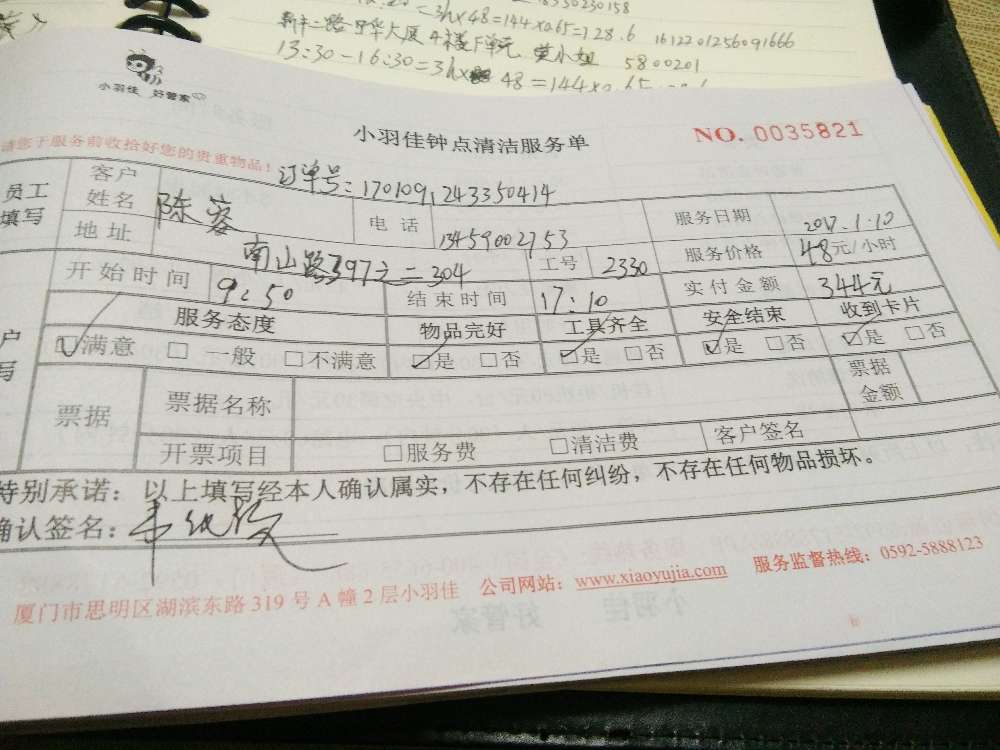 =3h×48=144×0.65=128.6 1612201256091666
5800201
13:30-16:30=3h× 48=144×0.65
小羽佳 好管家
小羽佳钟点清洁服务单
NO. 0035821
请您于服务前收拾好您的贵重物品!
订单号:170109,243350414
员工填写
客户姓名 陈蓉 电话 13459002753 服务日期 2017.1.10
地址 南山路397之二304 工号 2330 服务价格 48元/小时
开始时间 9:50 结束时间 17:10 实付金额 344元
服务态度 物品完好 工具齐全 安全结束 收到卡片
☑满意 □一般 □不满意 ☑是 □否 ☑是 □否 ☑是 □否 ☑是 □否
票据 票据名称 票据金额
开票项目 □服务费 □清洁费 客户签名
特别承诺:以上填写经本人确认属实,不存在任何纠纷,不存在任何物品损坏。
确认签名:
厦门市思明区湖滨东路319号A幢2层小羽佳 公司网站:www.xiaoyujia.com 服务监督热线:0592-5888123